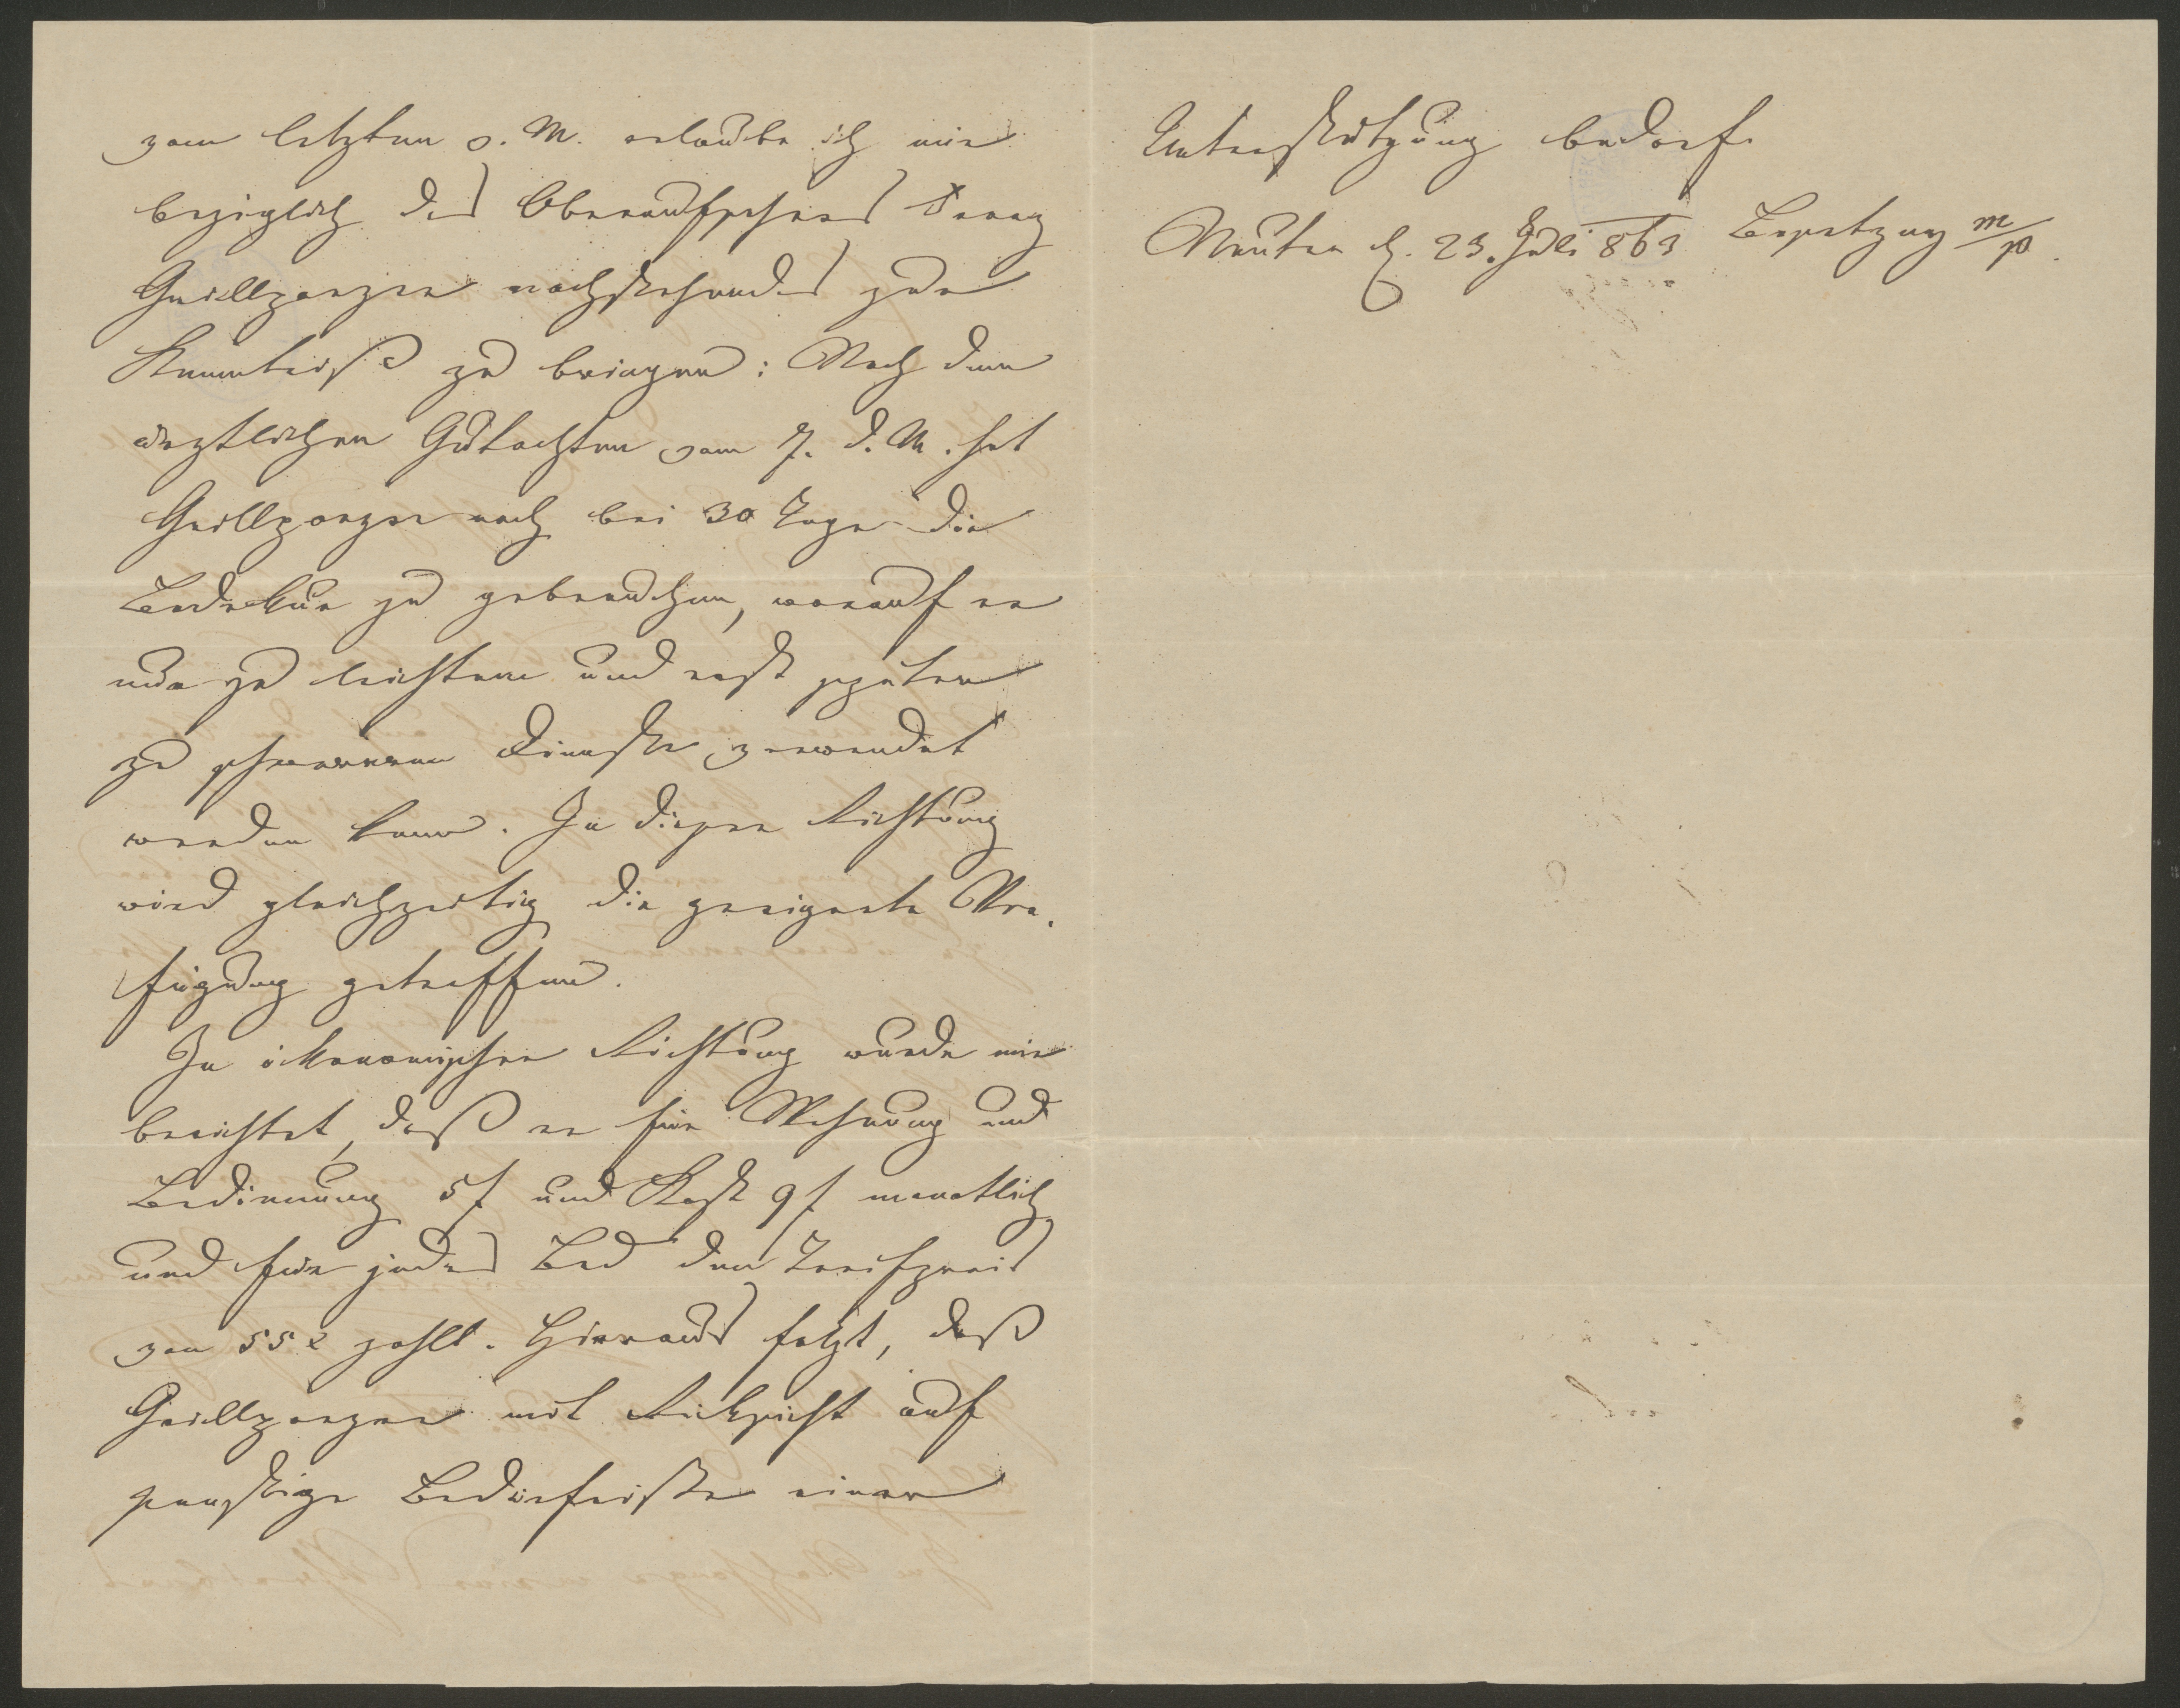 vom letzten v. M. erlaube ich mir
bezüglich des Oberaufsehers Franz
Grillparzer nachstehendes zur
Kenntniße zu bringen: Nach dem
ärztlichen Gutachten vom 7. d. M. hat
Grillparzer noch bei 30 Tage die
Badekur zu gebrauchen, worauf er
nur zu leichtem und erst später
zu schwererem Dienste verwendet
werden kann. In dieser Richtung
wird gleichzeitig die geeignete Ver-
fügung getroffen.
In ökonomischer Richtung wurde mir
berichtet, daß er für Wohnung und
Bedienung 5 f und Kost 9 f monatlich
und für jedes Bad den Tarifpreis
von 55 x zahlt. Hieraus folgt, daß
Grillparzer mit Rücksicht auf
sonstige Bedürfniße einer
Unterstützung bedarf.
d. 23. Juli 863 m/p.